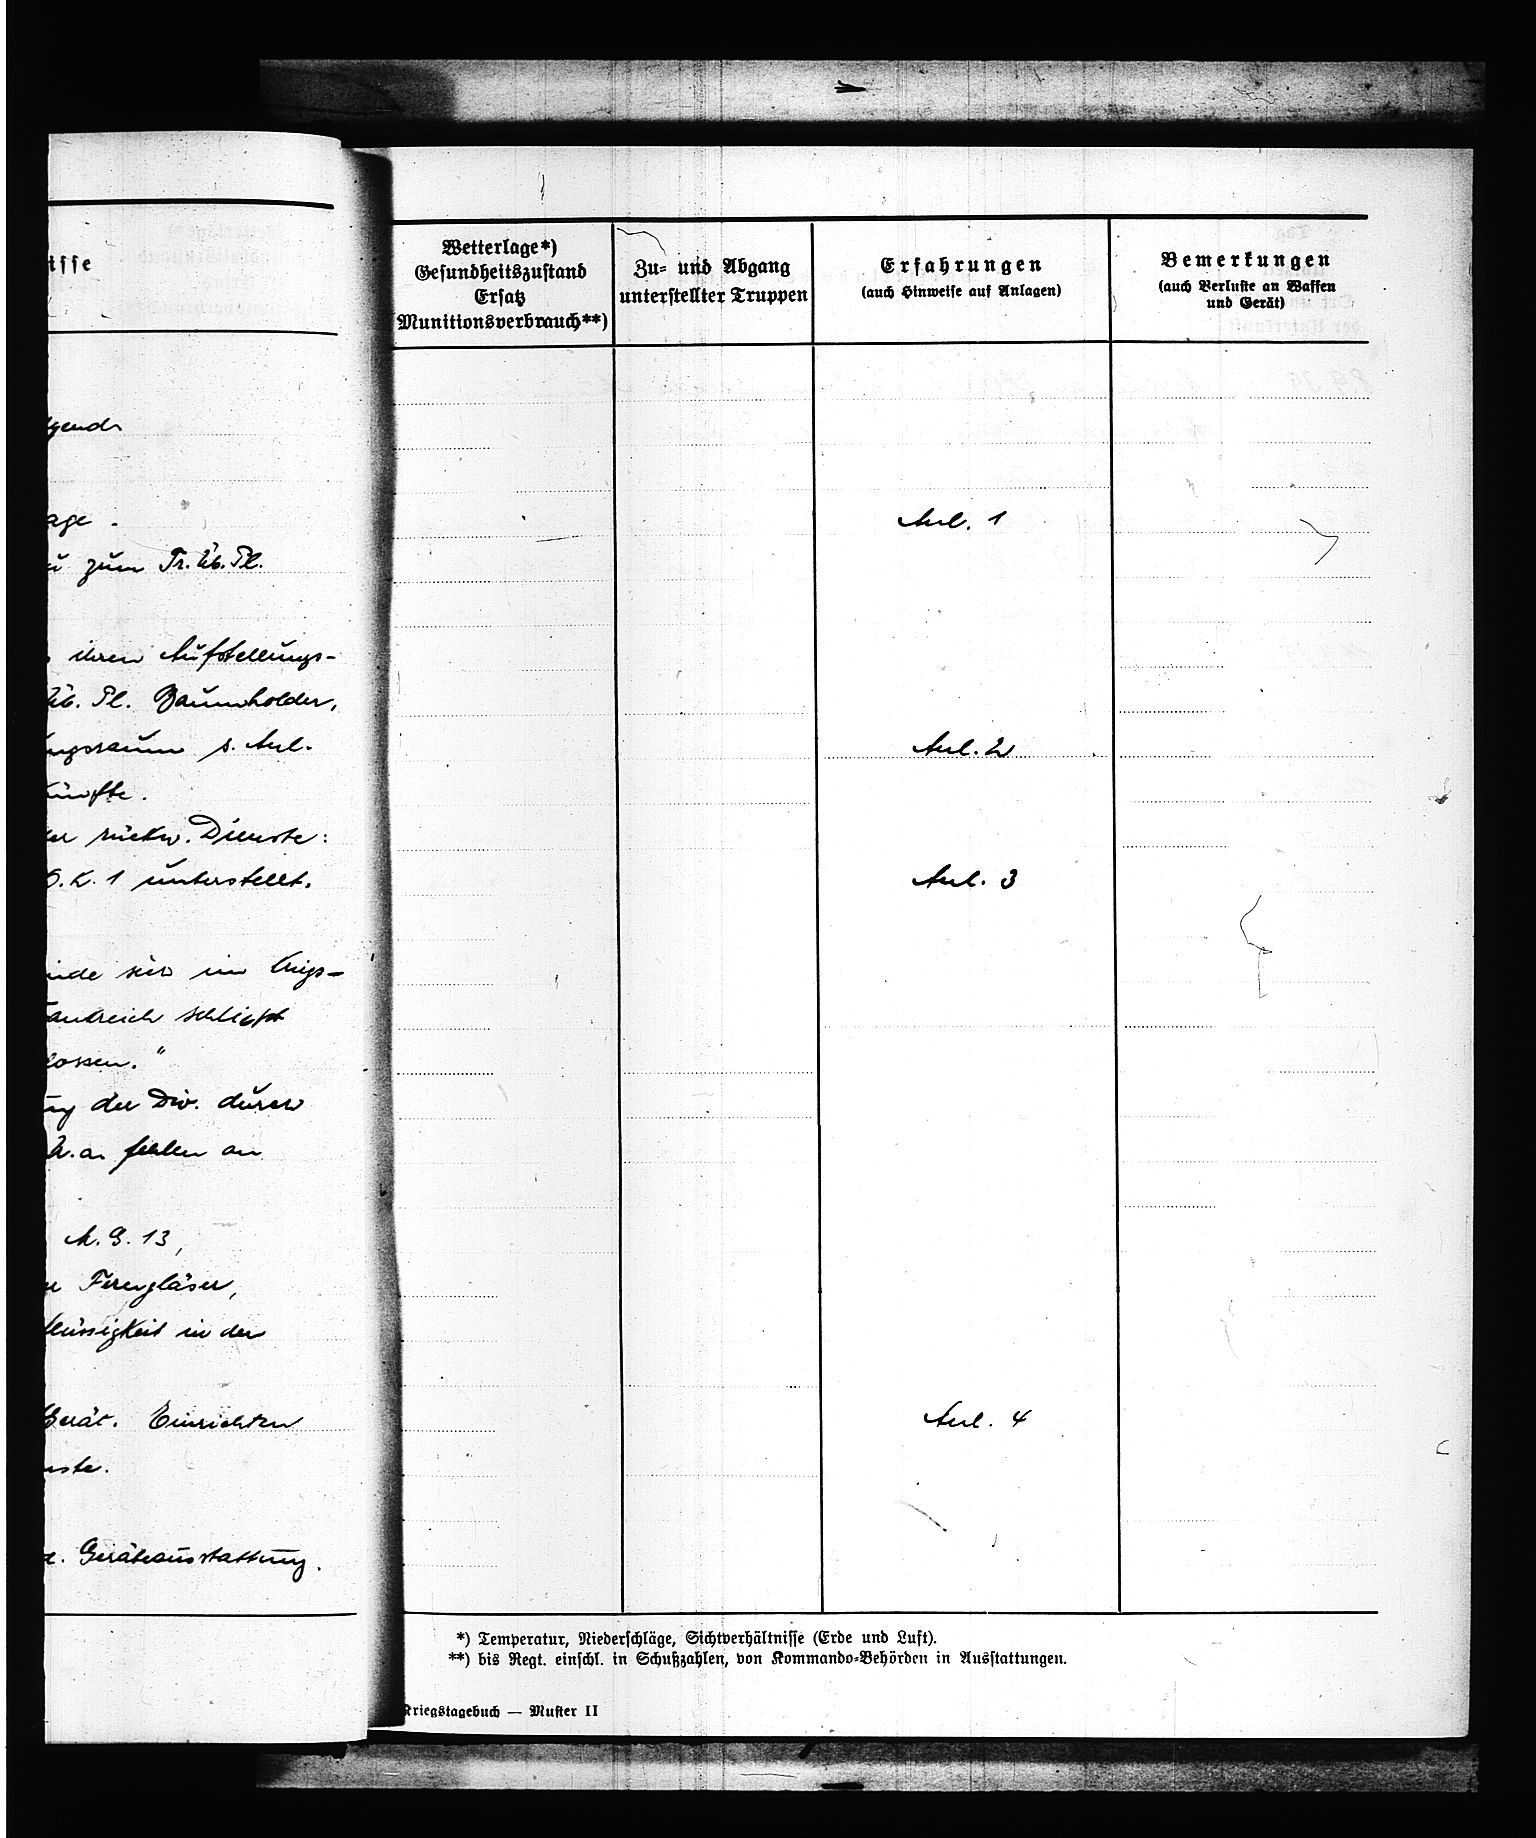 isse
Wetterlage*)
Gesundheitszustand
Ersatz
Munitionsverbrauch**)
Zu= und Abgang
unterstellter Truppen
Erfahrungen
(auch Hinweise auf Anlagen)
Bemerkungen
(auch Verluste an Waffen
und Gerät)
age.
Anl. 1
zum Tr. Üb. Pl.
ihren Aufstellungs-
Üb. Pl. Baumholder,
ngsraum s. Anl.
Anl. 2
künfte.
der rückw. Dienste:
O.K. 1 unterstellt.
Anl. 3
im
ankreich schließt
lossen."
ng der Div. durch
u.a. fehlen an
M.G. 13,
Ferngläser,
flüssigkeit in der
Gerät. Einrichten
Anl. 4
nste.
Geräteausstattung.
*) Temperatur, Niederschläge, Sichtverhältnisse (Erde und Luft).
**) bis Regt. einschl. in Schußzahlen, von Kommando=Behörden in Ausstattungen.
Kriegstagebuch — Muster II